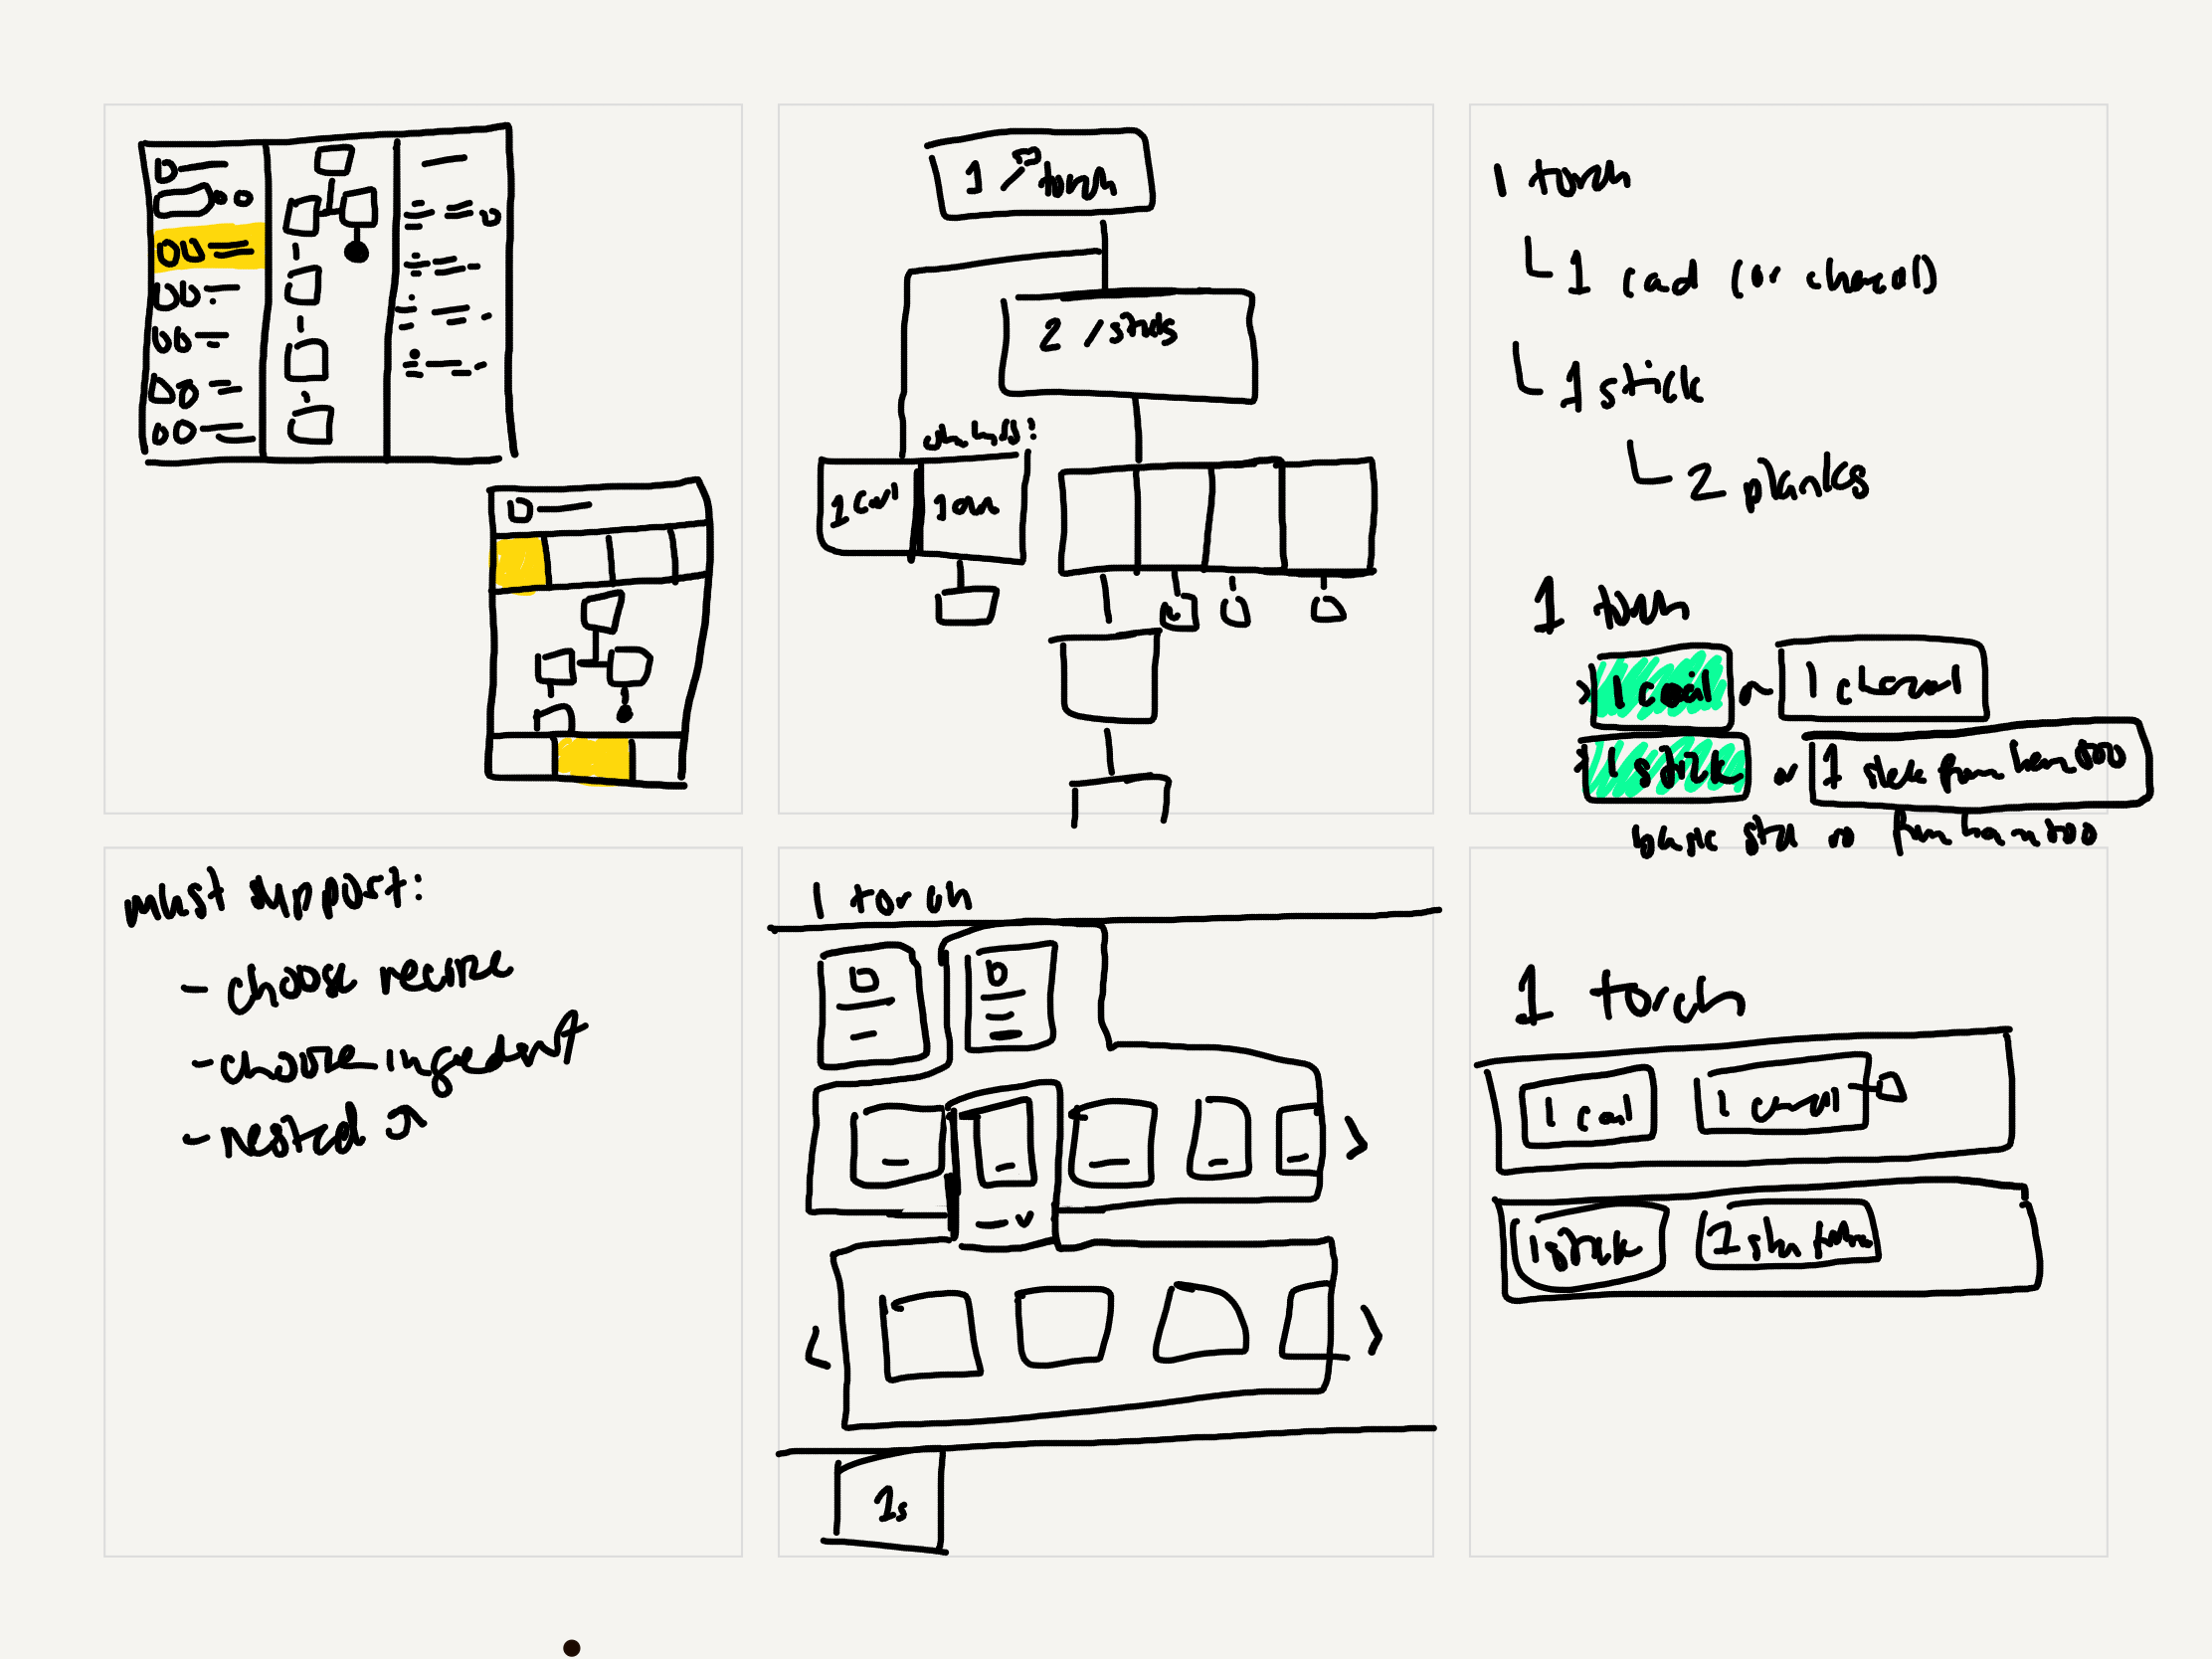 1 / torch
2 / sticks
1 coal
1 torch
1 coal (or charcoal)
1 stick
2 planks
1 torch
1 coal or 1 charcoal
1 stick or 1 stick from bamboo
basic stick no from bamboo
must support:
- choose recipe
- choose ingredient
- nested
1 torch
1s
1 torch
1 coal
1 charcoal
1 stick